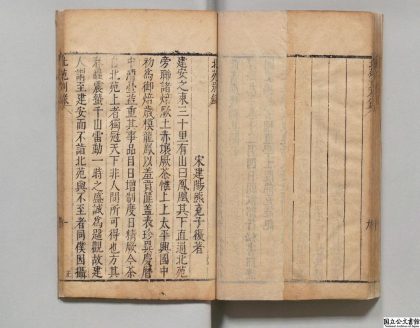 北苑別錄
宋建陽熊克子復著
建安之東三十里有山曰鳳凰其下直通北苑
旁聯諸焙厥土赤壤厥茶惟上上太平興國中
初為御焙歲模龍鳳以羞貢篚蓋表珍異慶曆
中漕臺益重其事品目日增制度日精厥今茶
自北苑上者獨冠天下非人間所可得也方其
春蟲震蟄千山雷動一時之盛誠為觀故建
人謂至建安而不詣北苑與不至者同僕因攝
北苑別錄
国立公文書館